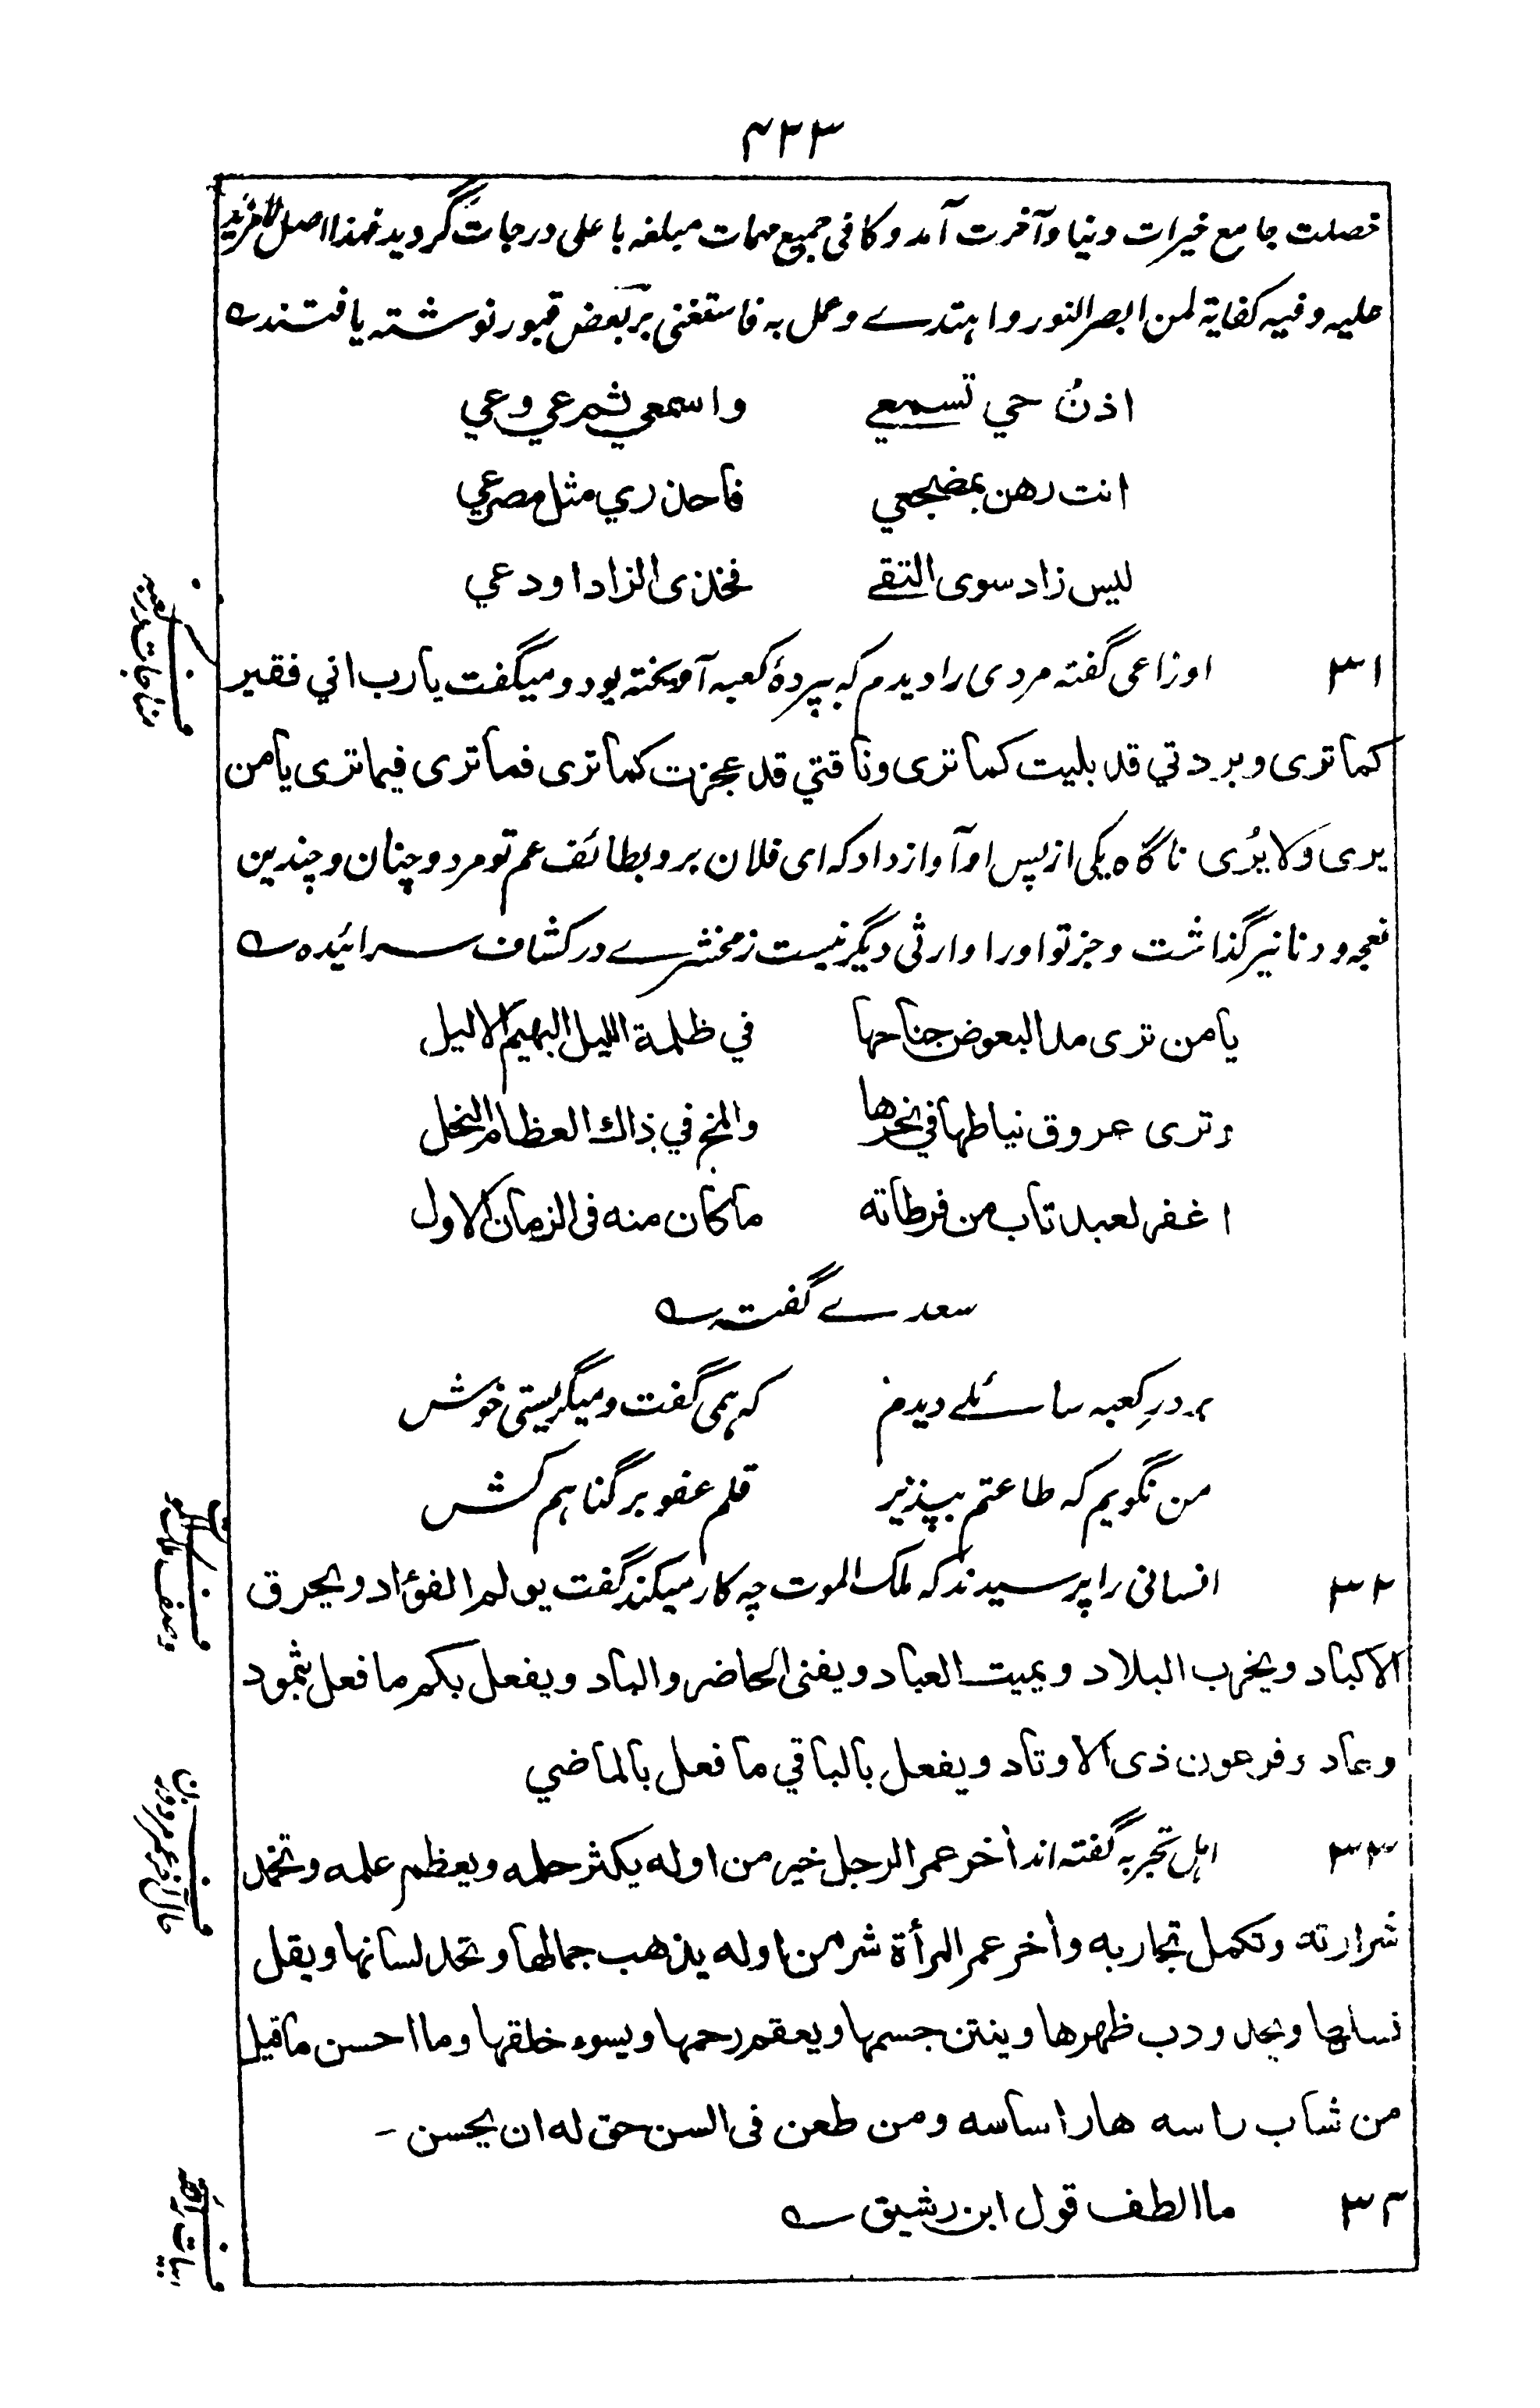 ۴۲۳
خصلت جامع خیرات دنیا وآخرت آمد وکافی جمیع مهمات مبلغه باعلی درجات گردید فهذا اصل لا مزید
علیه وفیه کفایة لمن ابصر النور واهتدے وعمل به فاستغنی بر بعض قبور نوشته یافتند ؎
اذنُ حي تسمعي واسمعي ثم عي وعي
انت رهن بمضجعي فاحذري مثل مصرعي
لیس زاد سوی التقے فخذی الزاد اودعي
۳۱ اوزاعی گفته مردی را دیدم که بپردۀ کعبه آویخته بود ومیگفت یا رب اني فقیر
کما تری وبردتي قد بلیت کما تری وناقتي قد عجزت کما تری فما تری فیما تری یا من
یری ولا یُری ناگاه یکی از پس او آواز داد که ای فلان برو بطائف عم تو مرد و چنان و چندین
نعجه ودنانیر گذاشت وجز تو اورا وارثی دیگر نیست زمخشرے در کشاف سرائیده ؎
یا من تری مد البعوض جناحها في ظلمة اللیل البهیم الالیل
وتری عروق نیاطها في نحرها والمخ في ذاك العظام النحل
اغفر لعبد تاب من فرطاته ما کان منه فی الزمان الاول
سعدے گفته ؎
بر درِ کعبه سائلے دیدم که همی گفت ومیگریستی خوش
من نگویم که طاعتم بپذیر قلم عفو بر گناهم کش
۳۲ انسانی را پرسیدند که ملک الموت چه کار میکند گفت یولم الفؤاد ویحرق
الاکباد ویخرب البلاد ویمیت العباد ویفنی الحاضر والباد ویفعل بکم ما فعل بثمود
وعاد وفرعون ذی الاوتاد ویفعل بالباقي ما فعل بالماضي
۳۳ اهل تجربه گفته اند أخر عمر الرجل خیر من اوله یکثر حلمه ویعظم علمه وتخمد
شرارته وتکمل تجاربه وأخر عمر المرأة شر من اوله یذهب جمالها وتحد لسانها ویقل
نسلها ویحدودب ظهرها وینتن جسمها ویعقم رحمها ویسوء خلقها وما احسن ما قیل
من شاب راسه هار اساسه ومن طعن فی السن حق له ان یحسن -
۳۴ ما الطف قول ابن رشیق ؎